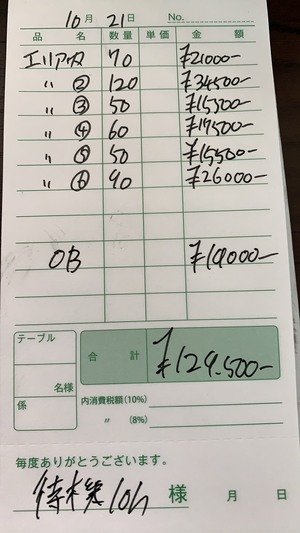 10月 21日 No.
品名 数量 単価 金額
エリア 70 ¥21000-
〃 ② 120 ¥34500-
〃 ③ 50 ¥15500-
〃 ④ 60 ¥17500-
〃 ⑤ 50 ¥15500-
〃 ⑥ 90 ¥26000-
OB
テーブル
名様
係
合計 ¥129.500-
内消費税額(10%)
〃 (8%)
毎度ありがとうございます。
待機10h 様 月 日